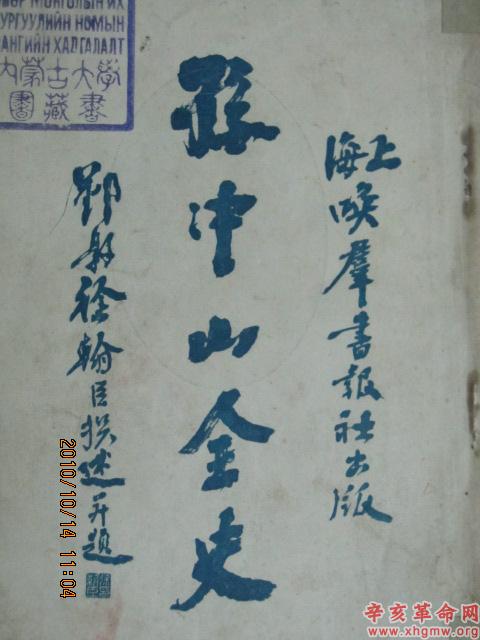 ВӨР МОНГОЛЫН ИХ
УРГУУЛИЙН НОМЫН
АНГИЙН ХАДГАЛАЛТ
内蒙古大学
圕藏書
上海喚羣書報社出版
孫中山全史
鄞縣徐翰臣撰述并題
2010/10/14 11:04
辛亥革命网
www.xhgmw.org